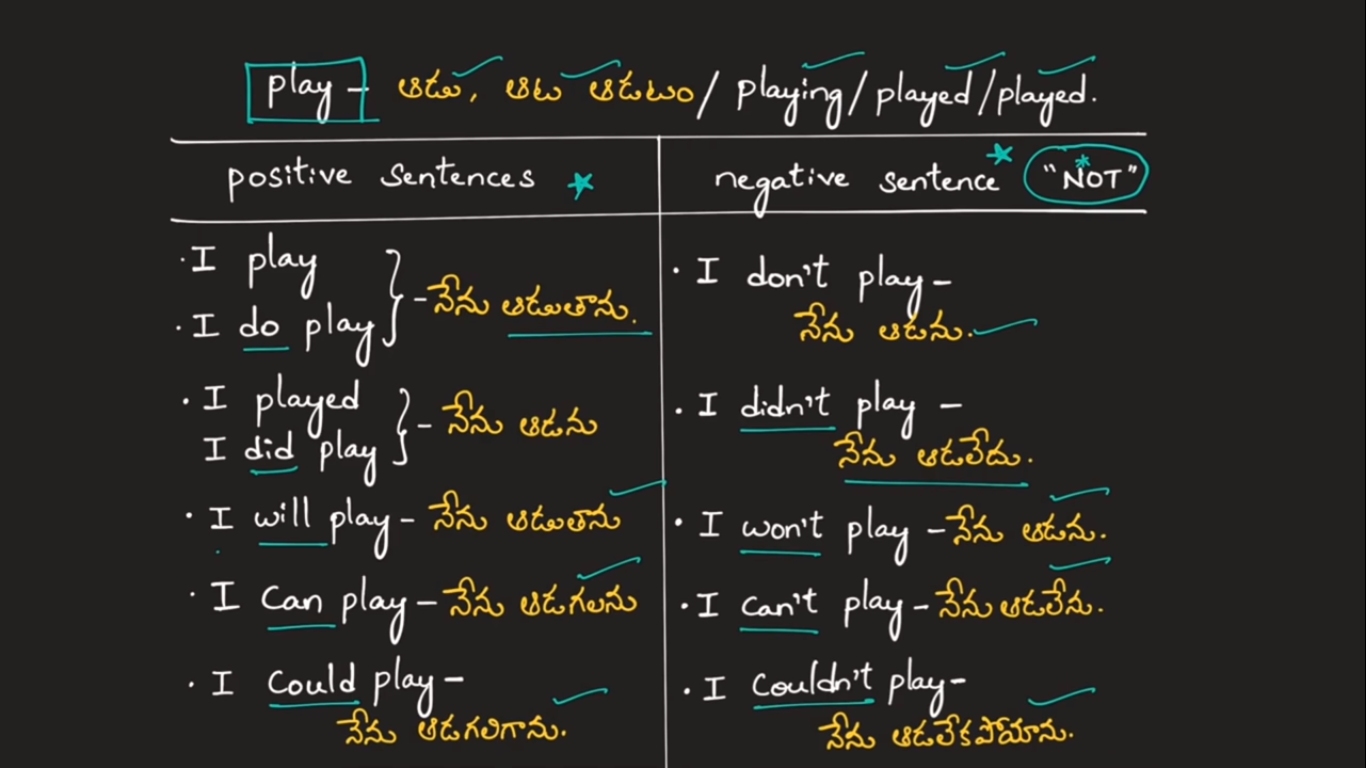 play - ఆడు, ఆట ఆడటం / playing / played / played.
positive sentences
negative sentence "NOT"
· I play
· I do play
- నేను ఆడుతాను.
· I don't play -
నేను ఆడను.
· I played
I did play
- నేను ఆడను
· I didn't play -
నేను ఆడలేదు.
· I will play - నేను ఆడుతాను
· I won't play - నేను ఆడను.
· I can play - నేను ఆడగలను
· I can't play - నేను ఆడలేను.
· I could play -
నేను ఆడగలిగాను.
· I couldn't play -
నేను ఆడలేకపోయాను.